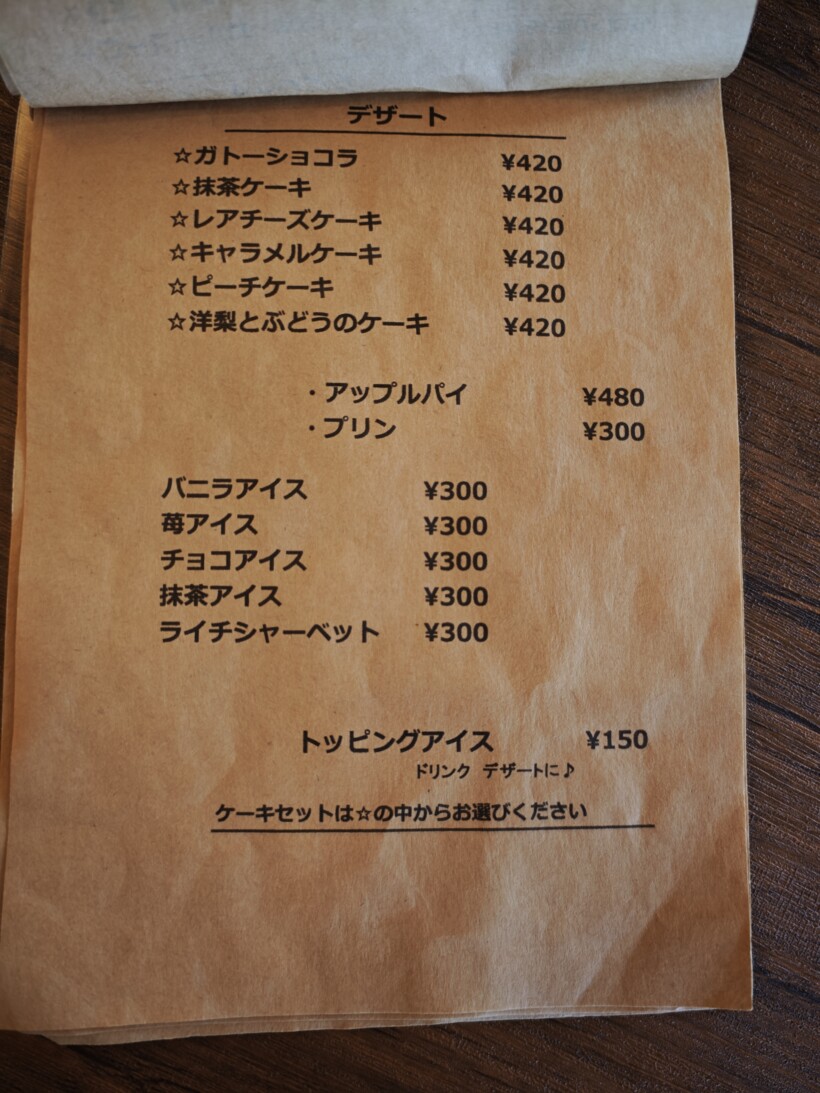 デザート
☆ガトーショコラ ¥420
☆抹茶ケーキ ¥420
☆レアチーズケーキ ¥420
☆キャラメルケーキ ¥420
☆ピーチケーキ ¥420
☆洋梨とぶどうのケーキ ¥420
・アップルパイ ¥480
・プリン ¥300
バニラアイス ¥300
苺アイス ¥300
チョコアイス ¥300
抹茶アイス ¥300
ライチシャーベット ¥300
トッピングアイス ¥150
ドリンク デザートに♪
ケーキセットは☆の中からお選びください